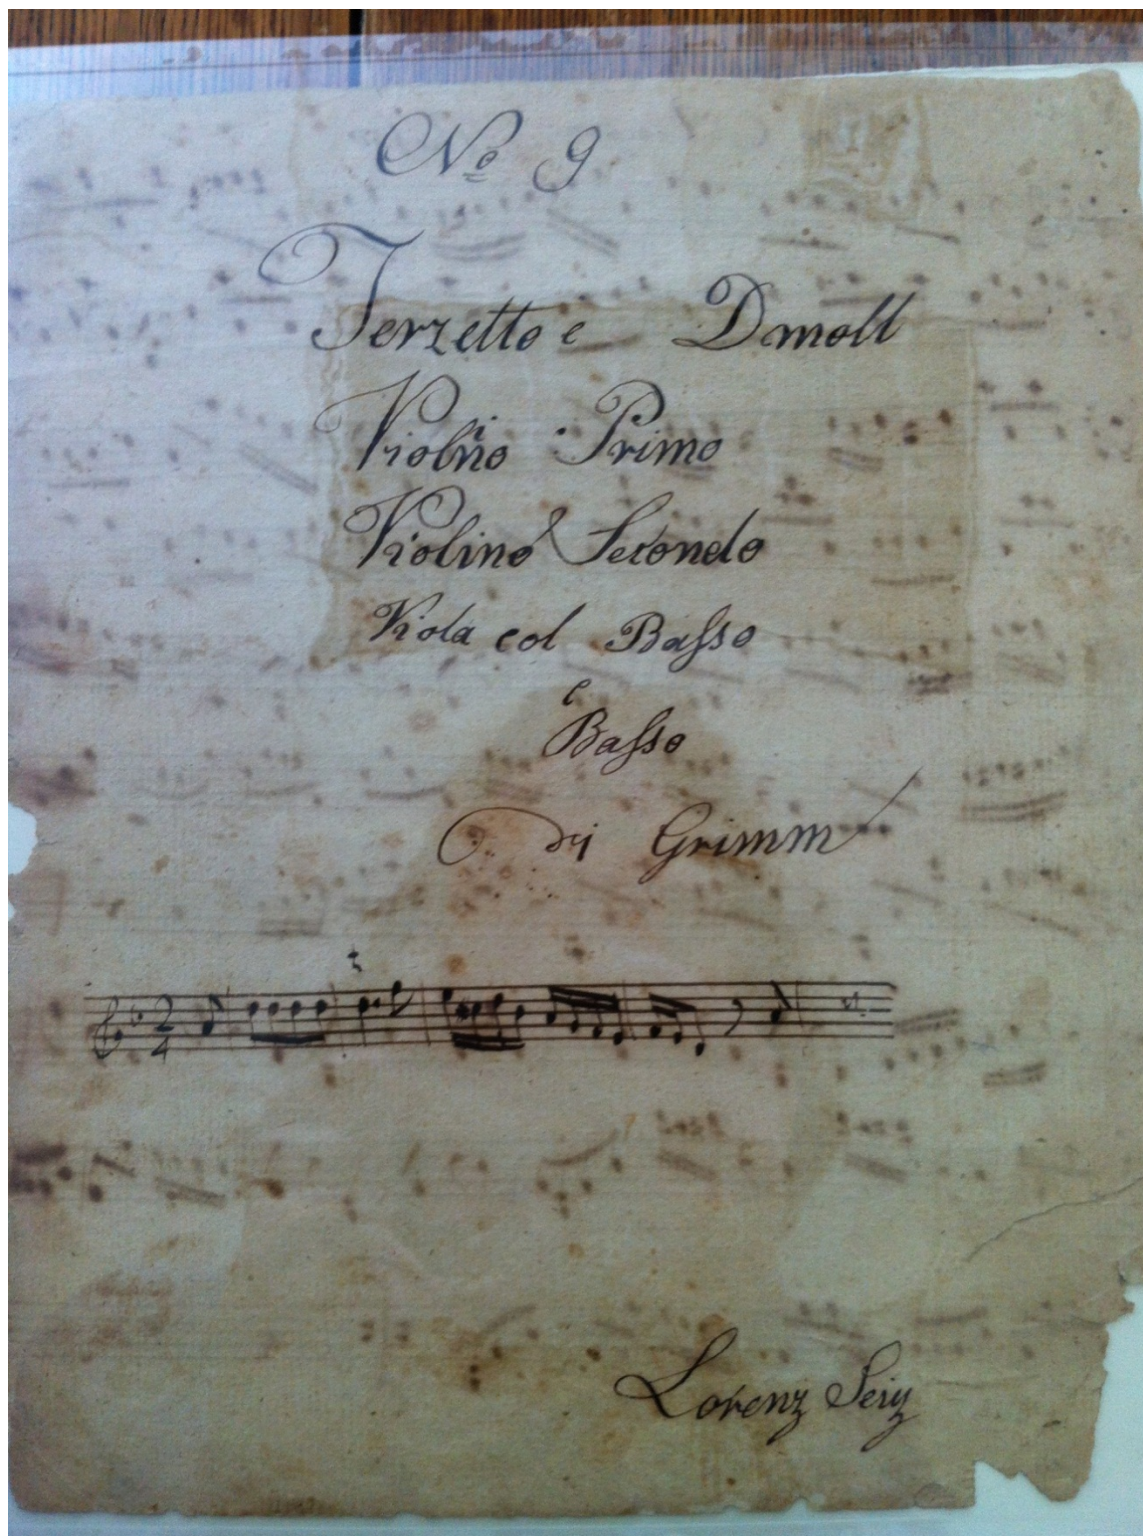 No 9
Terzetto e Dmoll
Violino Primo
Violino Secondo
Viola col Baſso
e
Baſso
di Grimm
2
4
Lorenz